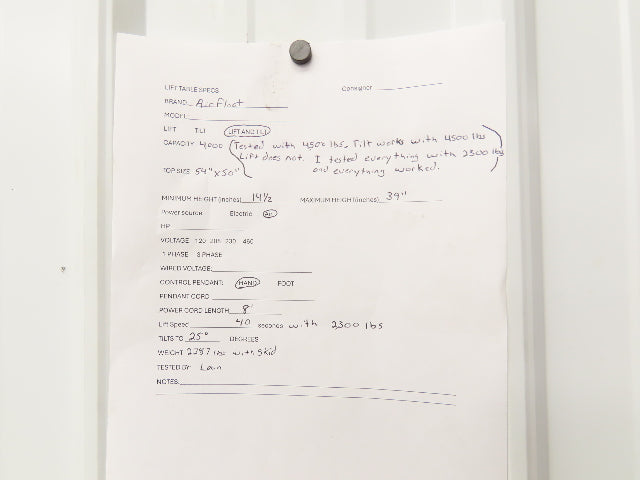 LIFT TABLE SPECS Consignor
BRAND Airfloat
MODEL
LIFT TILT LIFT AND TILT
CAPACITY 4000 (Tested with 4500 lbs. Tilt works with 4500 lbs
Lift does not. I tested everything with 2300 lbs
and everything worked.)
TOP SIZE 54" x 50"
MINIMUM HEIGHT (inches) 14 1/2 MAXIMUM HEIGHT (inches) 39"
Power source Electric Air
HP
VOLTAGE 120 208 230 460
1 PHASE 3 PHASE
WIRED VOLTAGE:
CONTROL PENDANT: HAND FOOT
PENDANT CORD
POWER CORD LENGTH 8'
Lift Speed 40 seconds with 2300 lbs
TILTS TO 25° DEGREES
WEIGHT 2287 lbs with skid
TESTED BY
NOTES: